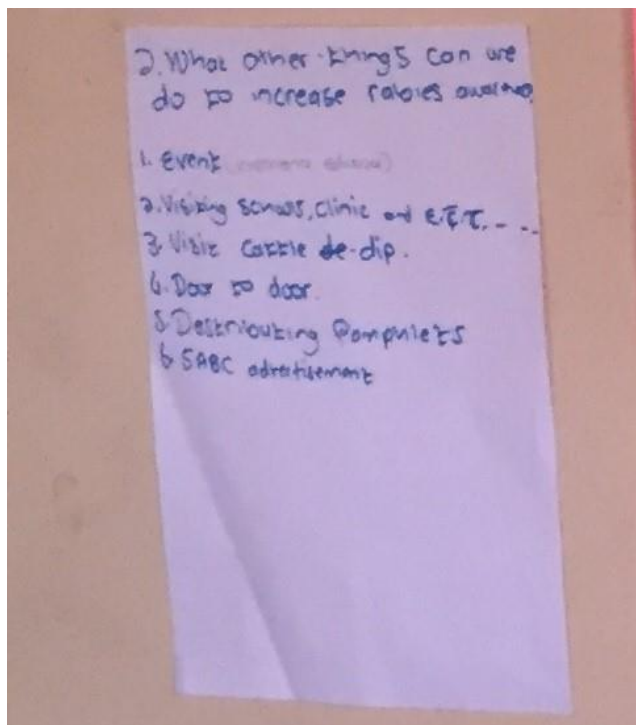 2. What other things can we
do to increase rabies
1. Event
2. Visiting schools, Clinic and E.T.T. - - -
3. Visit Cattle de-dip.
4. Door to door.
5. Destributing Pamphlets
6. SABC advertisement